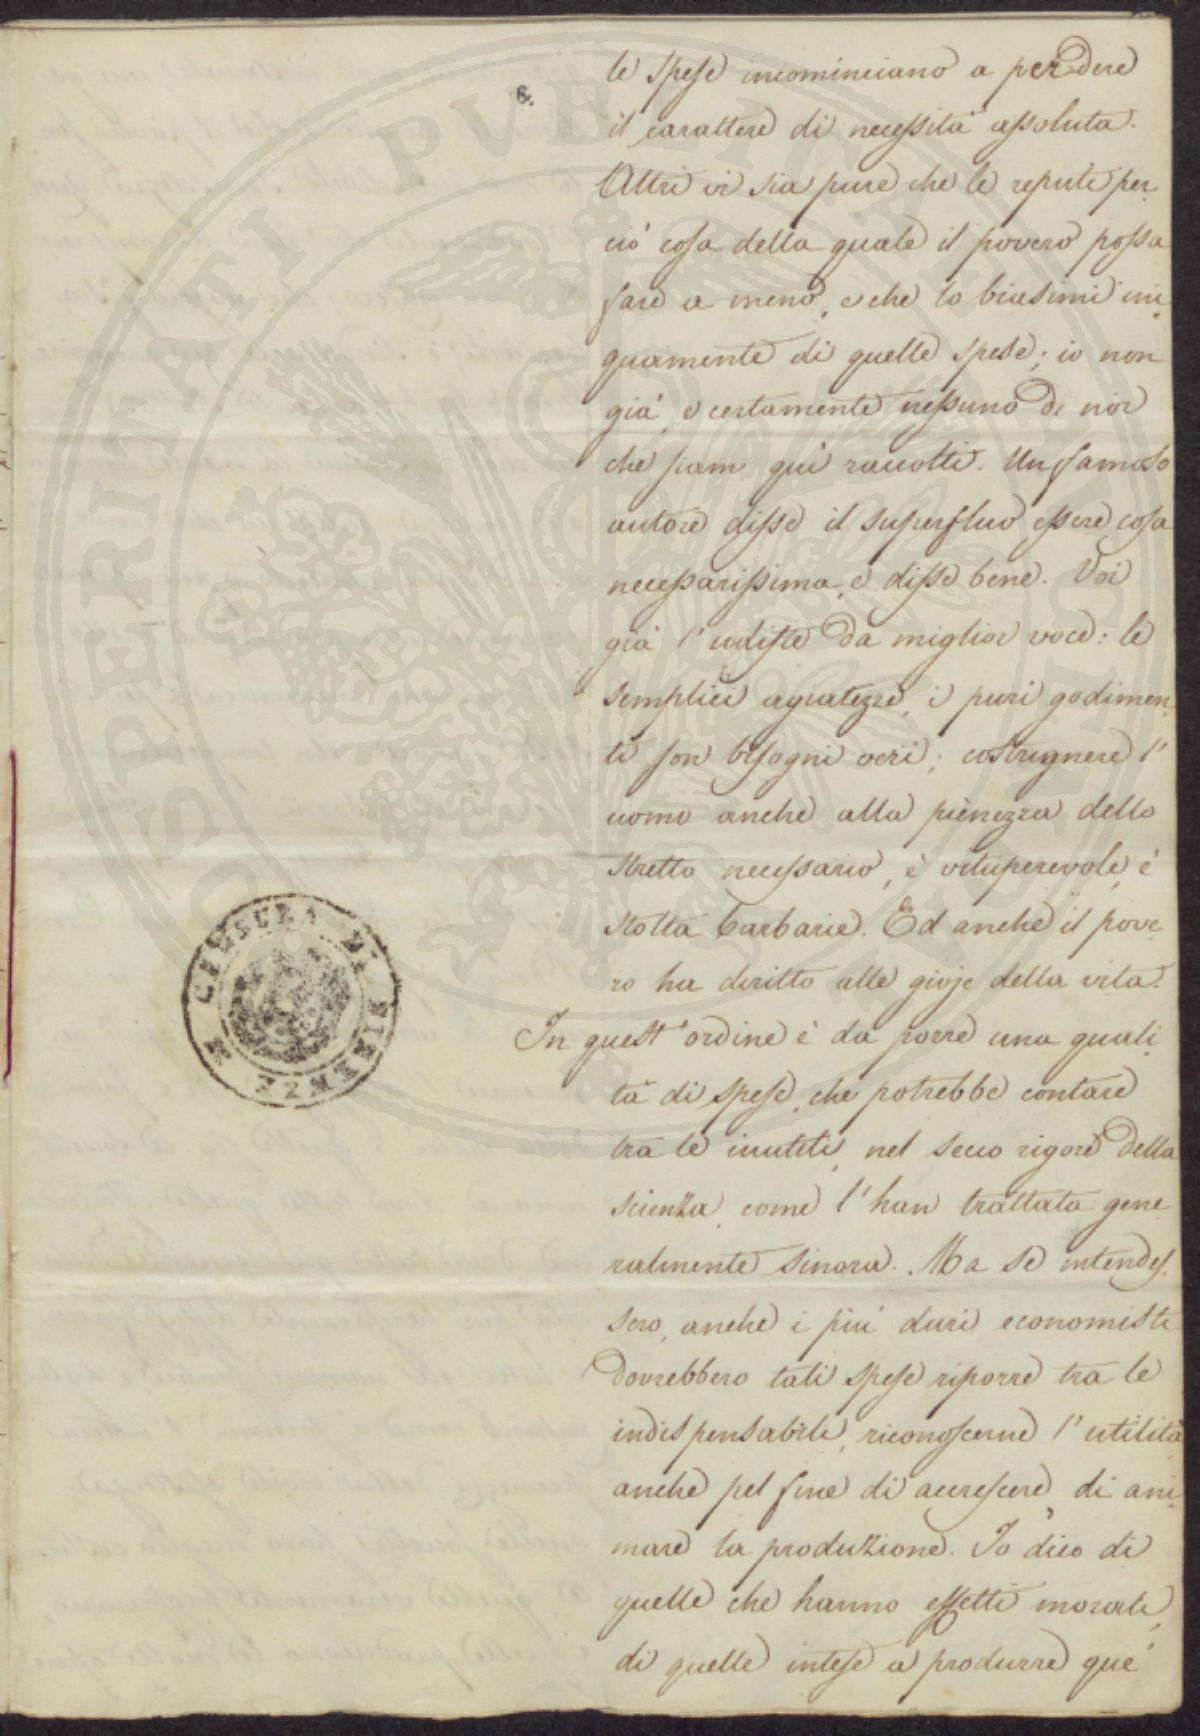 6.
le spese incominciano a perdere
il carattere di necessità assoluta.
Altri vi sia pure che le reputi per
ciò cosa della quale il povero possa
fare a meno, e che lo biasimi ini
quamente di quelle spese; io non
già, e certamente nessuno di noi
che siam quì raccolti. Un famoso
autore disse il superfluo essere cosa
necessarissima, e disse bene. Voi
già l'udiste da miglior voce: le
semplici agiatezze, i puri godimen
ti son bisogni veri; costrignere l'
uomo anche alla pienezza dello
stretto necessario, è vituperevole, è
stolta barbarie. Ed anche il pove
ro ha diritto alle gioje della vita.
In quest'ordine è da porre una quali
tà di spese, che potrebbe contare
tra le inutili, nel secco rigore della
scienza, come l'han trattata gene
ralmente sinora. Ma se intendes
sero, anche i più duri economisti
dovrebbero tali spese riporre tra le
indispensabili, riconoscerne l'utilità
anche pel fine di accrescere, di ani
mare la produzione. Io dico di
quelle che hanno effetti morali,
di quelle intese a produrre que'
CENSURA DI FIRENZE
PROSPERITATI PVBLICAE